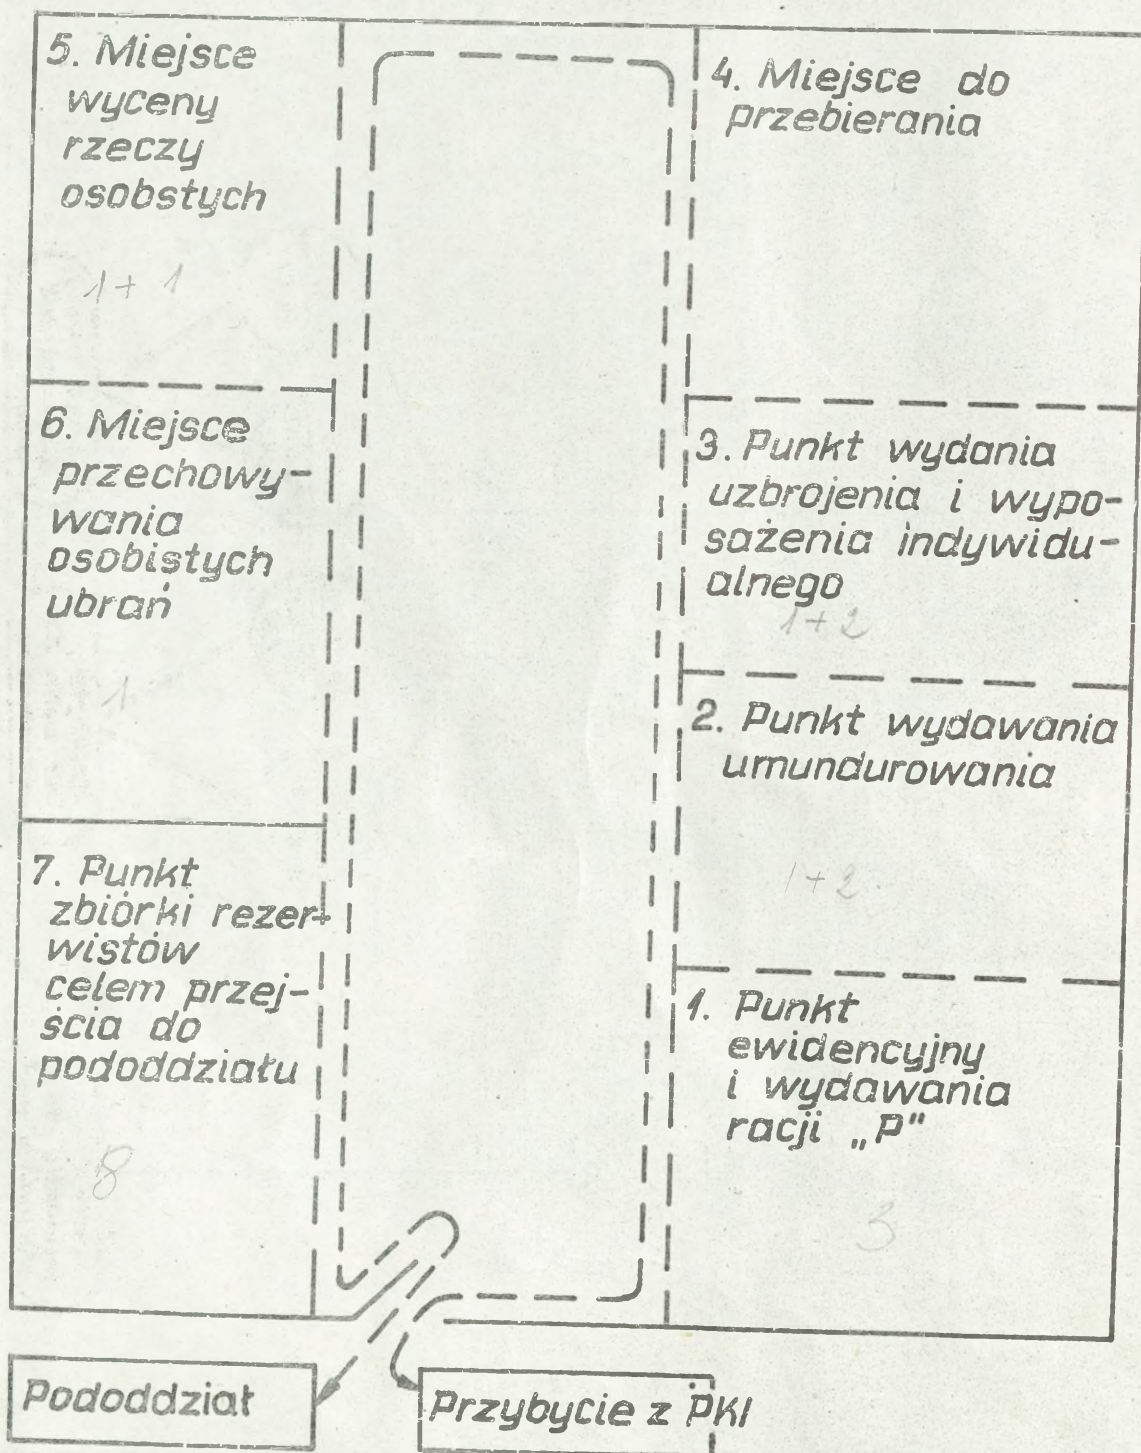 5. Miejsce
wyceny
rzeczy
osobstych
1+1
6. Miejsce
przechowy-
wania
osobistych
ubrań
1
7. Punkt
zbiórki rezer-
wistów
celem przej-
ścia do
pododdziału
8
4. Miejsce do
przebierania
3. Punkt wydania
uzbrojenia i wypo-
sażenia indywidu-
alnego
1+2
2. Punkt wydawania
umundurowania
1+2
1. Punkt
ewidencyjny
i wydawania
racji „P"
3
Pododdział
Przybycie z PKI